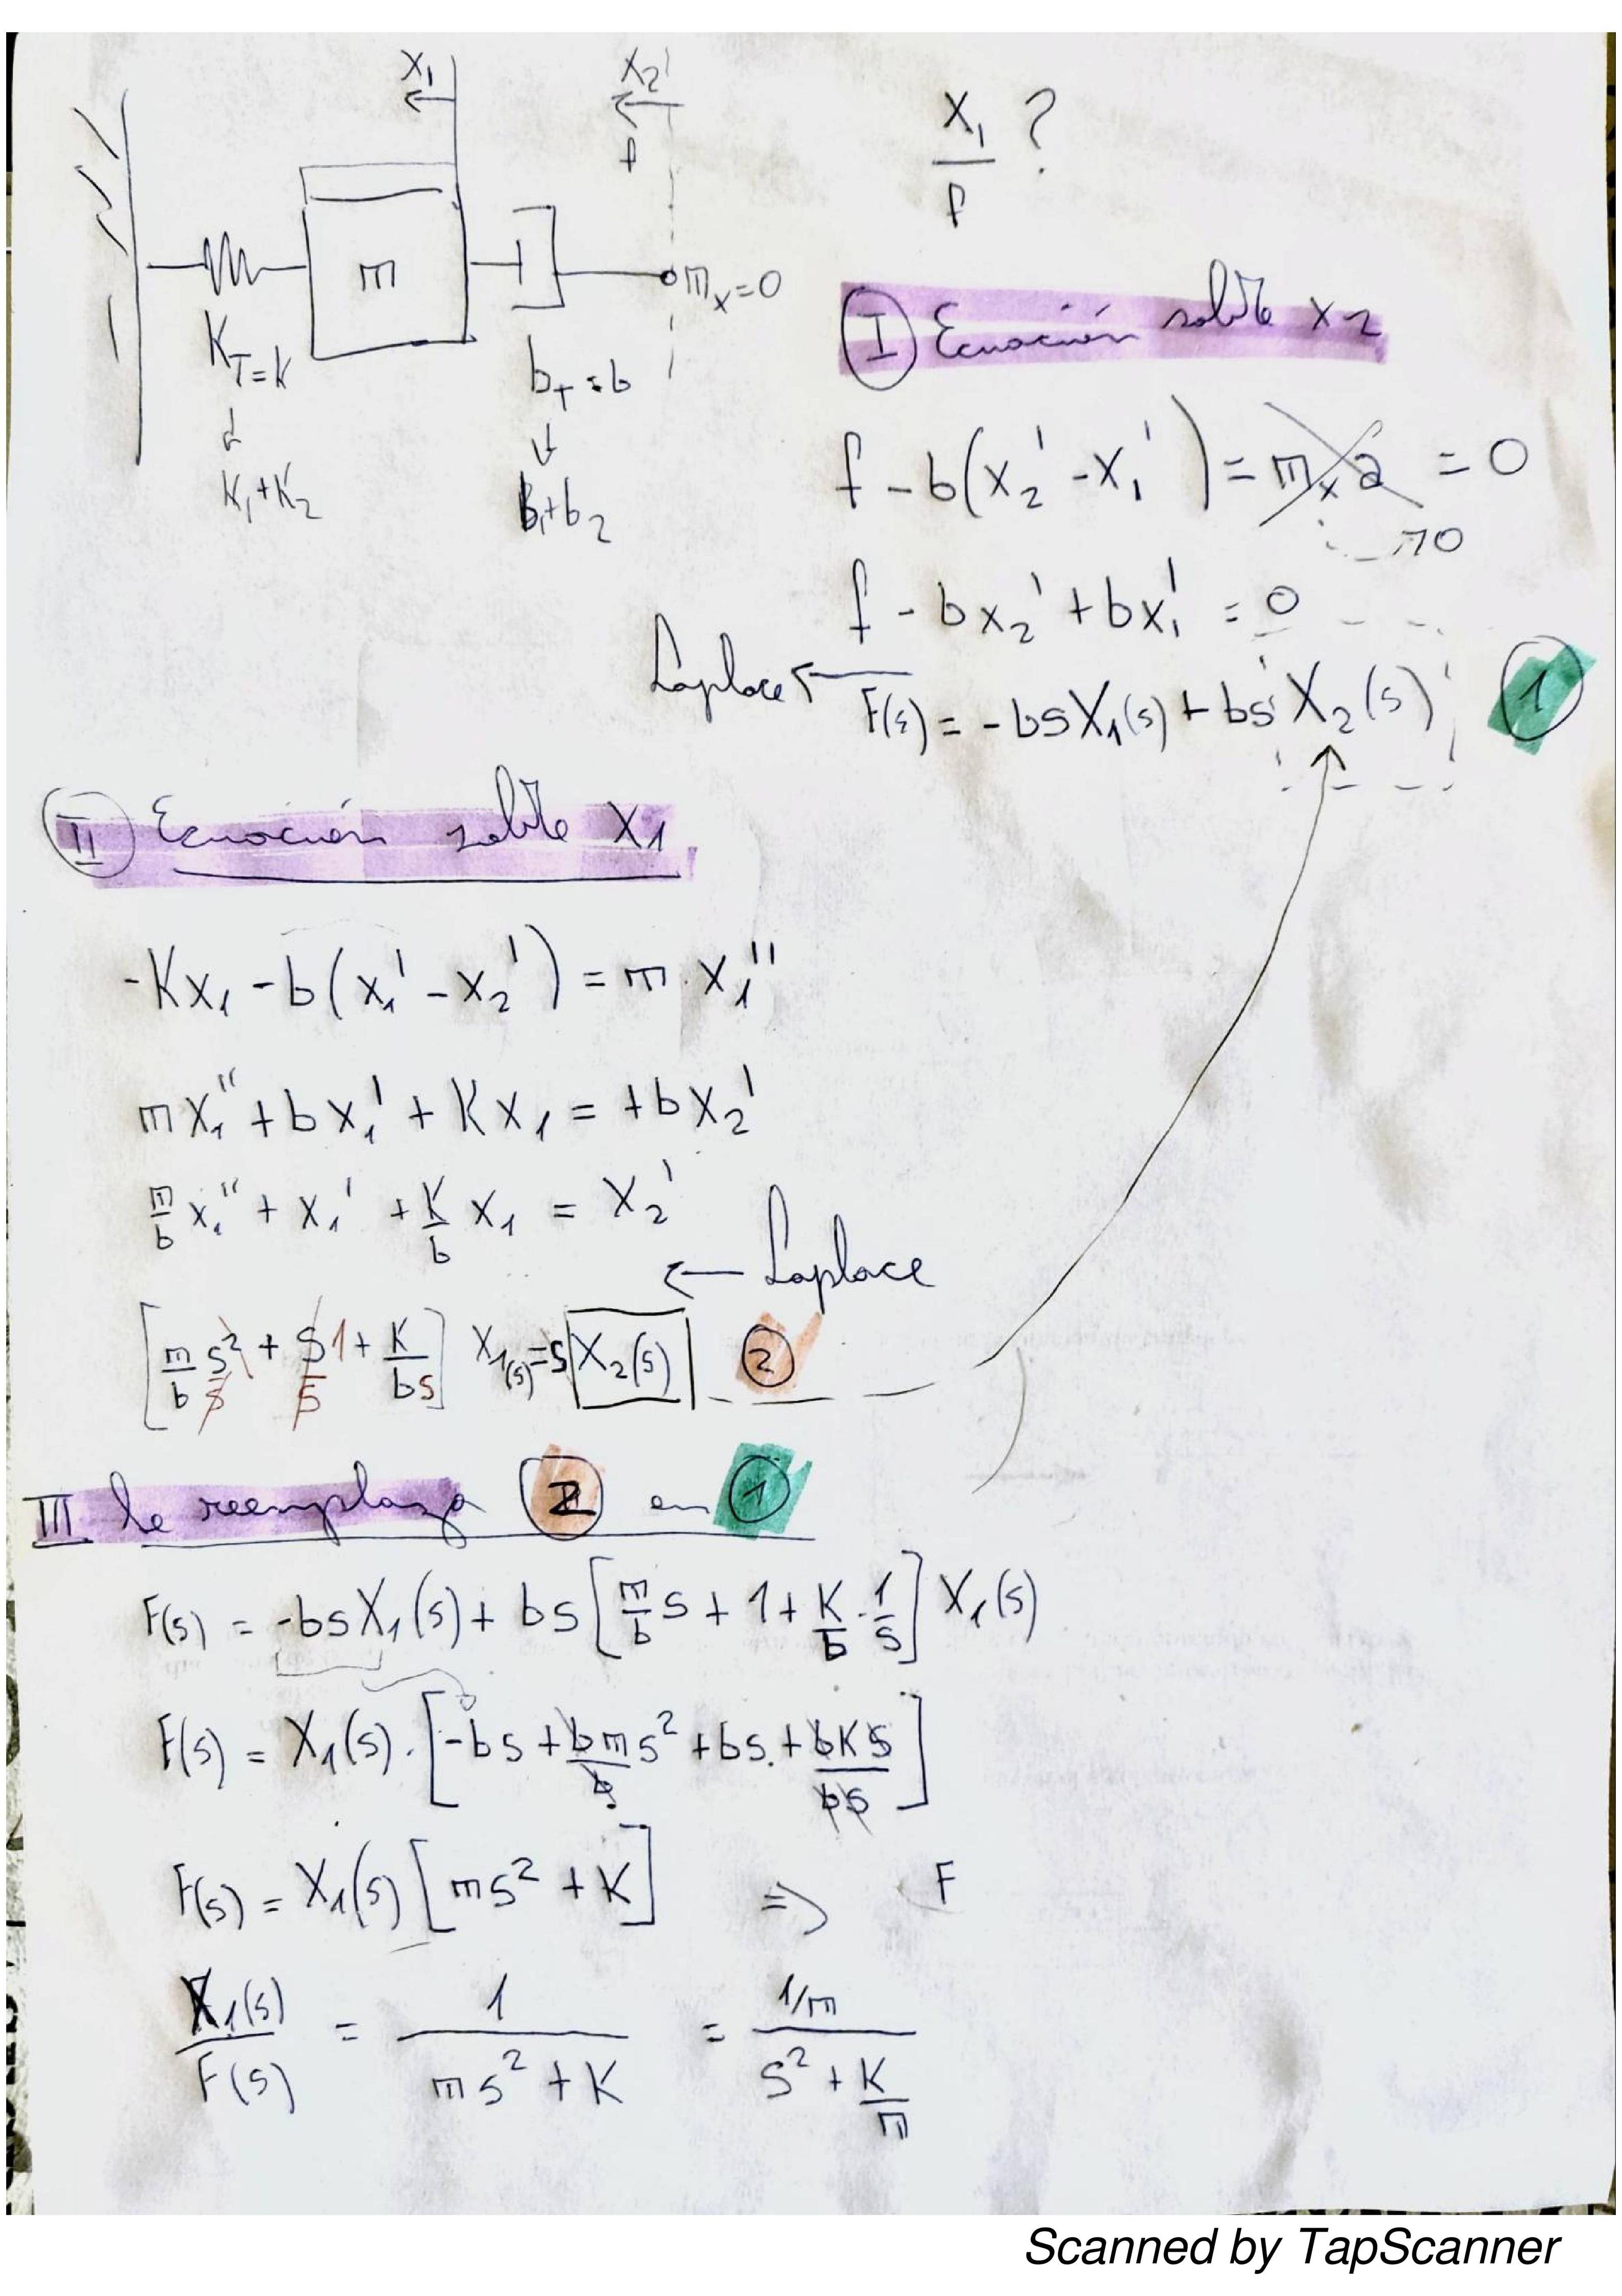 X₁
X₂
f
X₁/f ?
m
m_x=0
K_T=K
b_T=b
K₁+K₂
b₁+b₂
I Ecuación sobre x2
f - b(x₂' - x₁') = m_x a = 0
→0
f - bx₂' + bx₁' = 0
Laplace
F(s) = -bsX₁(s) + bs X₂(s) 1
II Ecuación sobre X1
-Kx₁ - b(x₁' - x₂') = m.x₁''
mx₁'' + bx₁' + Kx₁ = +bx₂'
m/b x₁'' + x₁' + K/b x₁ = X₂'
← Laplace
[m/b s²/s + s/s 1 + K/bs] X₁(s)=s X₂(s) 2
III Se reemplaza 2 en 1
F(s) = -bsX₁(s) + bs [m/b s + 1 + K/b . 1/s] X₁(s)
F(s) = X₁(s) . [-bs + bm/b s² + bs. + bKs/bs]
F(s) = X₁(s) [ms² + K] => F
X₁(s)/F(s) = 1/(ms² + K) = (1/m)/(s² + K/m)
Scanned by TapScanner